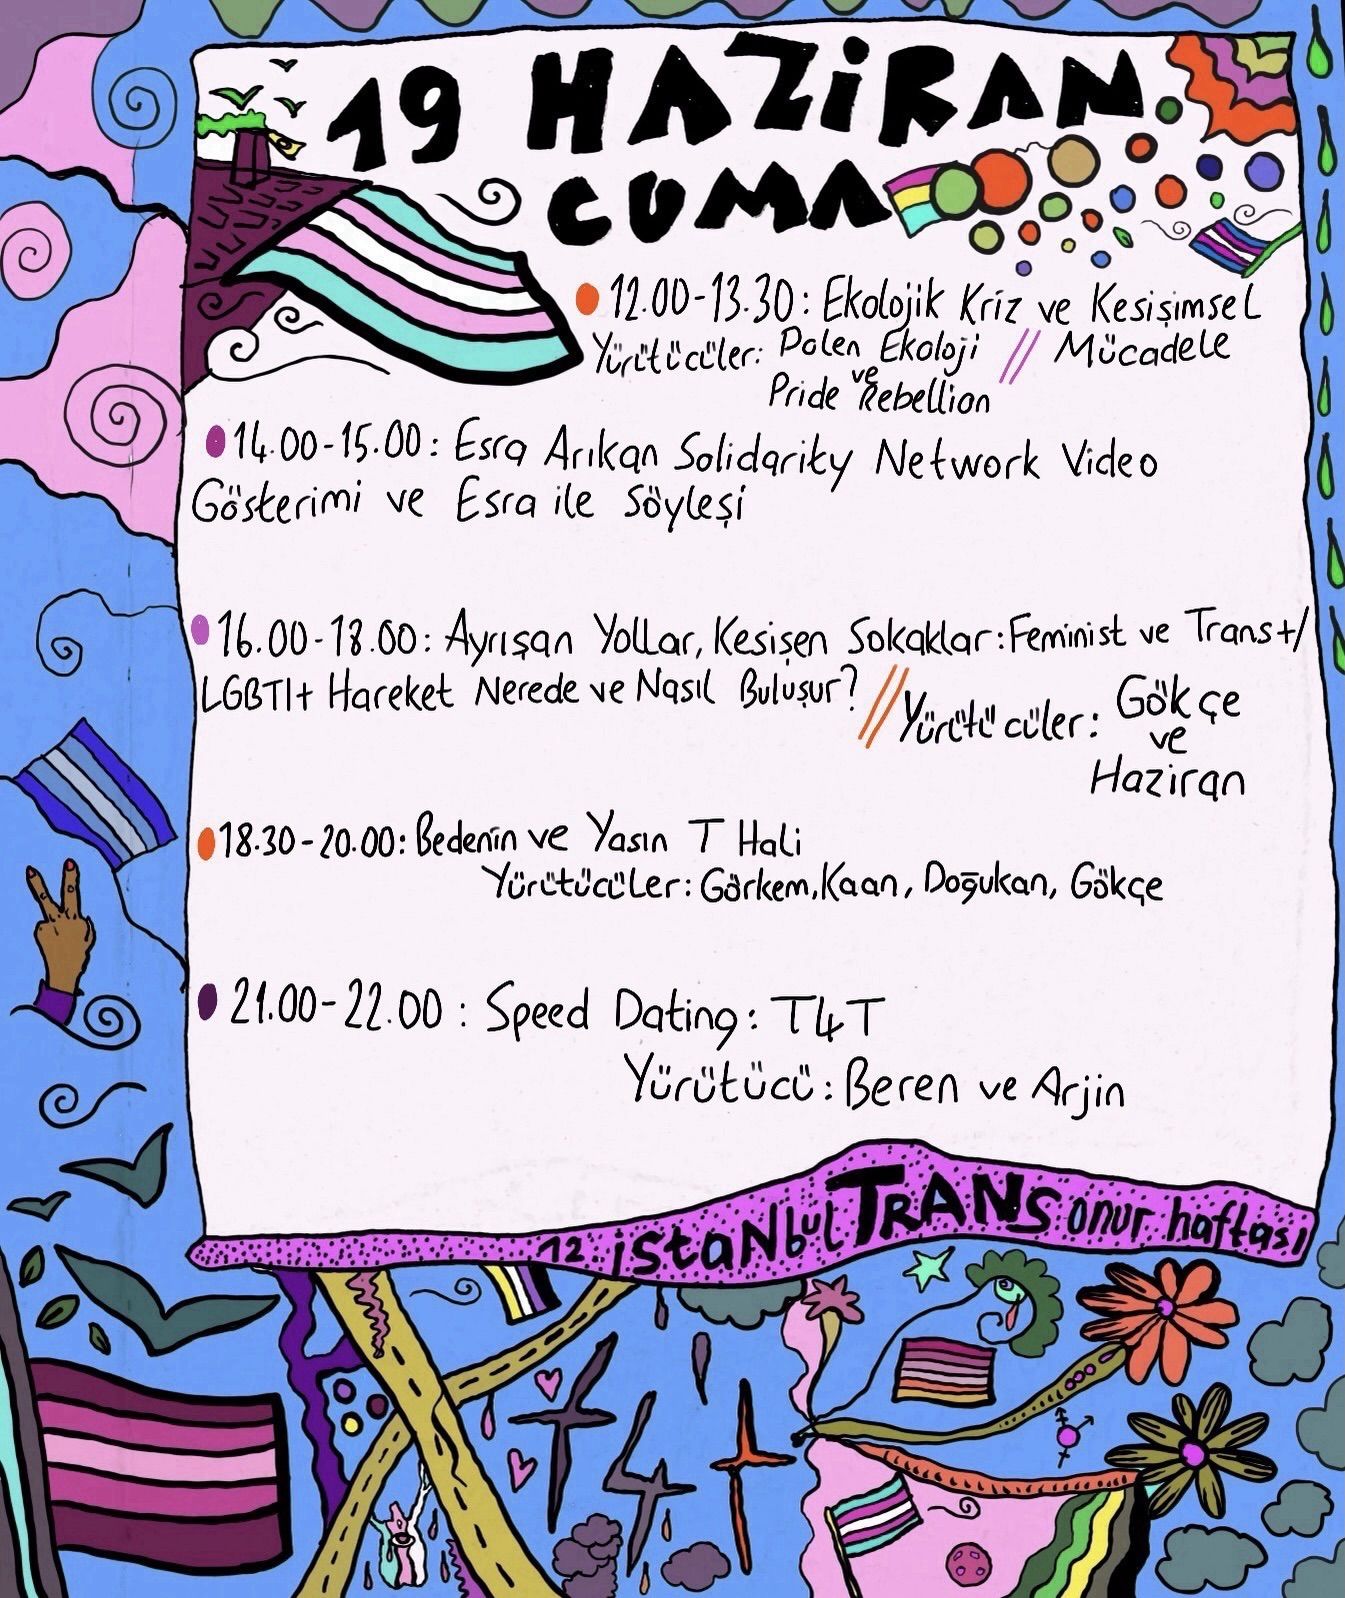 19 HAZİRAN
CUMA
12.00-13.30: Ekolojik Kriz ve Kesişimsel
Mücadele
Yürütücüler: Polen Ekoloji //
ve
Pride Rebellion
14.00-15.00: Esra Arıkan Solidarity Network Video
Gösterimi ve Esra ile Söyleşi
16.00-18.00: Ayrışan Yollar, Kesişen Sokaklar: Feminist ve Trans+/
LGBTI+ Hareket Nerede ve Nasıl Buluşur? //
Yürütücüler: Gökçe
ve
Haziran
18.30-20.00: Bedenin ve Yasın T Hali
Yürütücüler: Görkem, Kaan, Doğukan, Gökçe
21.00-22.00: Speed Dating: T4T
Yürütücü: Beren ve Arjin
12. istanbul TRANS onur haftası
t4t